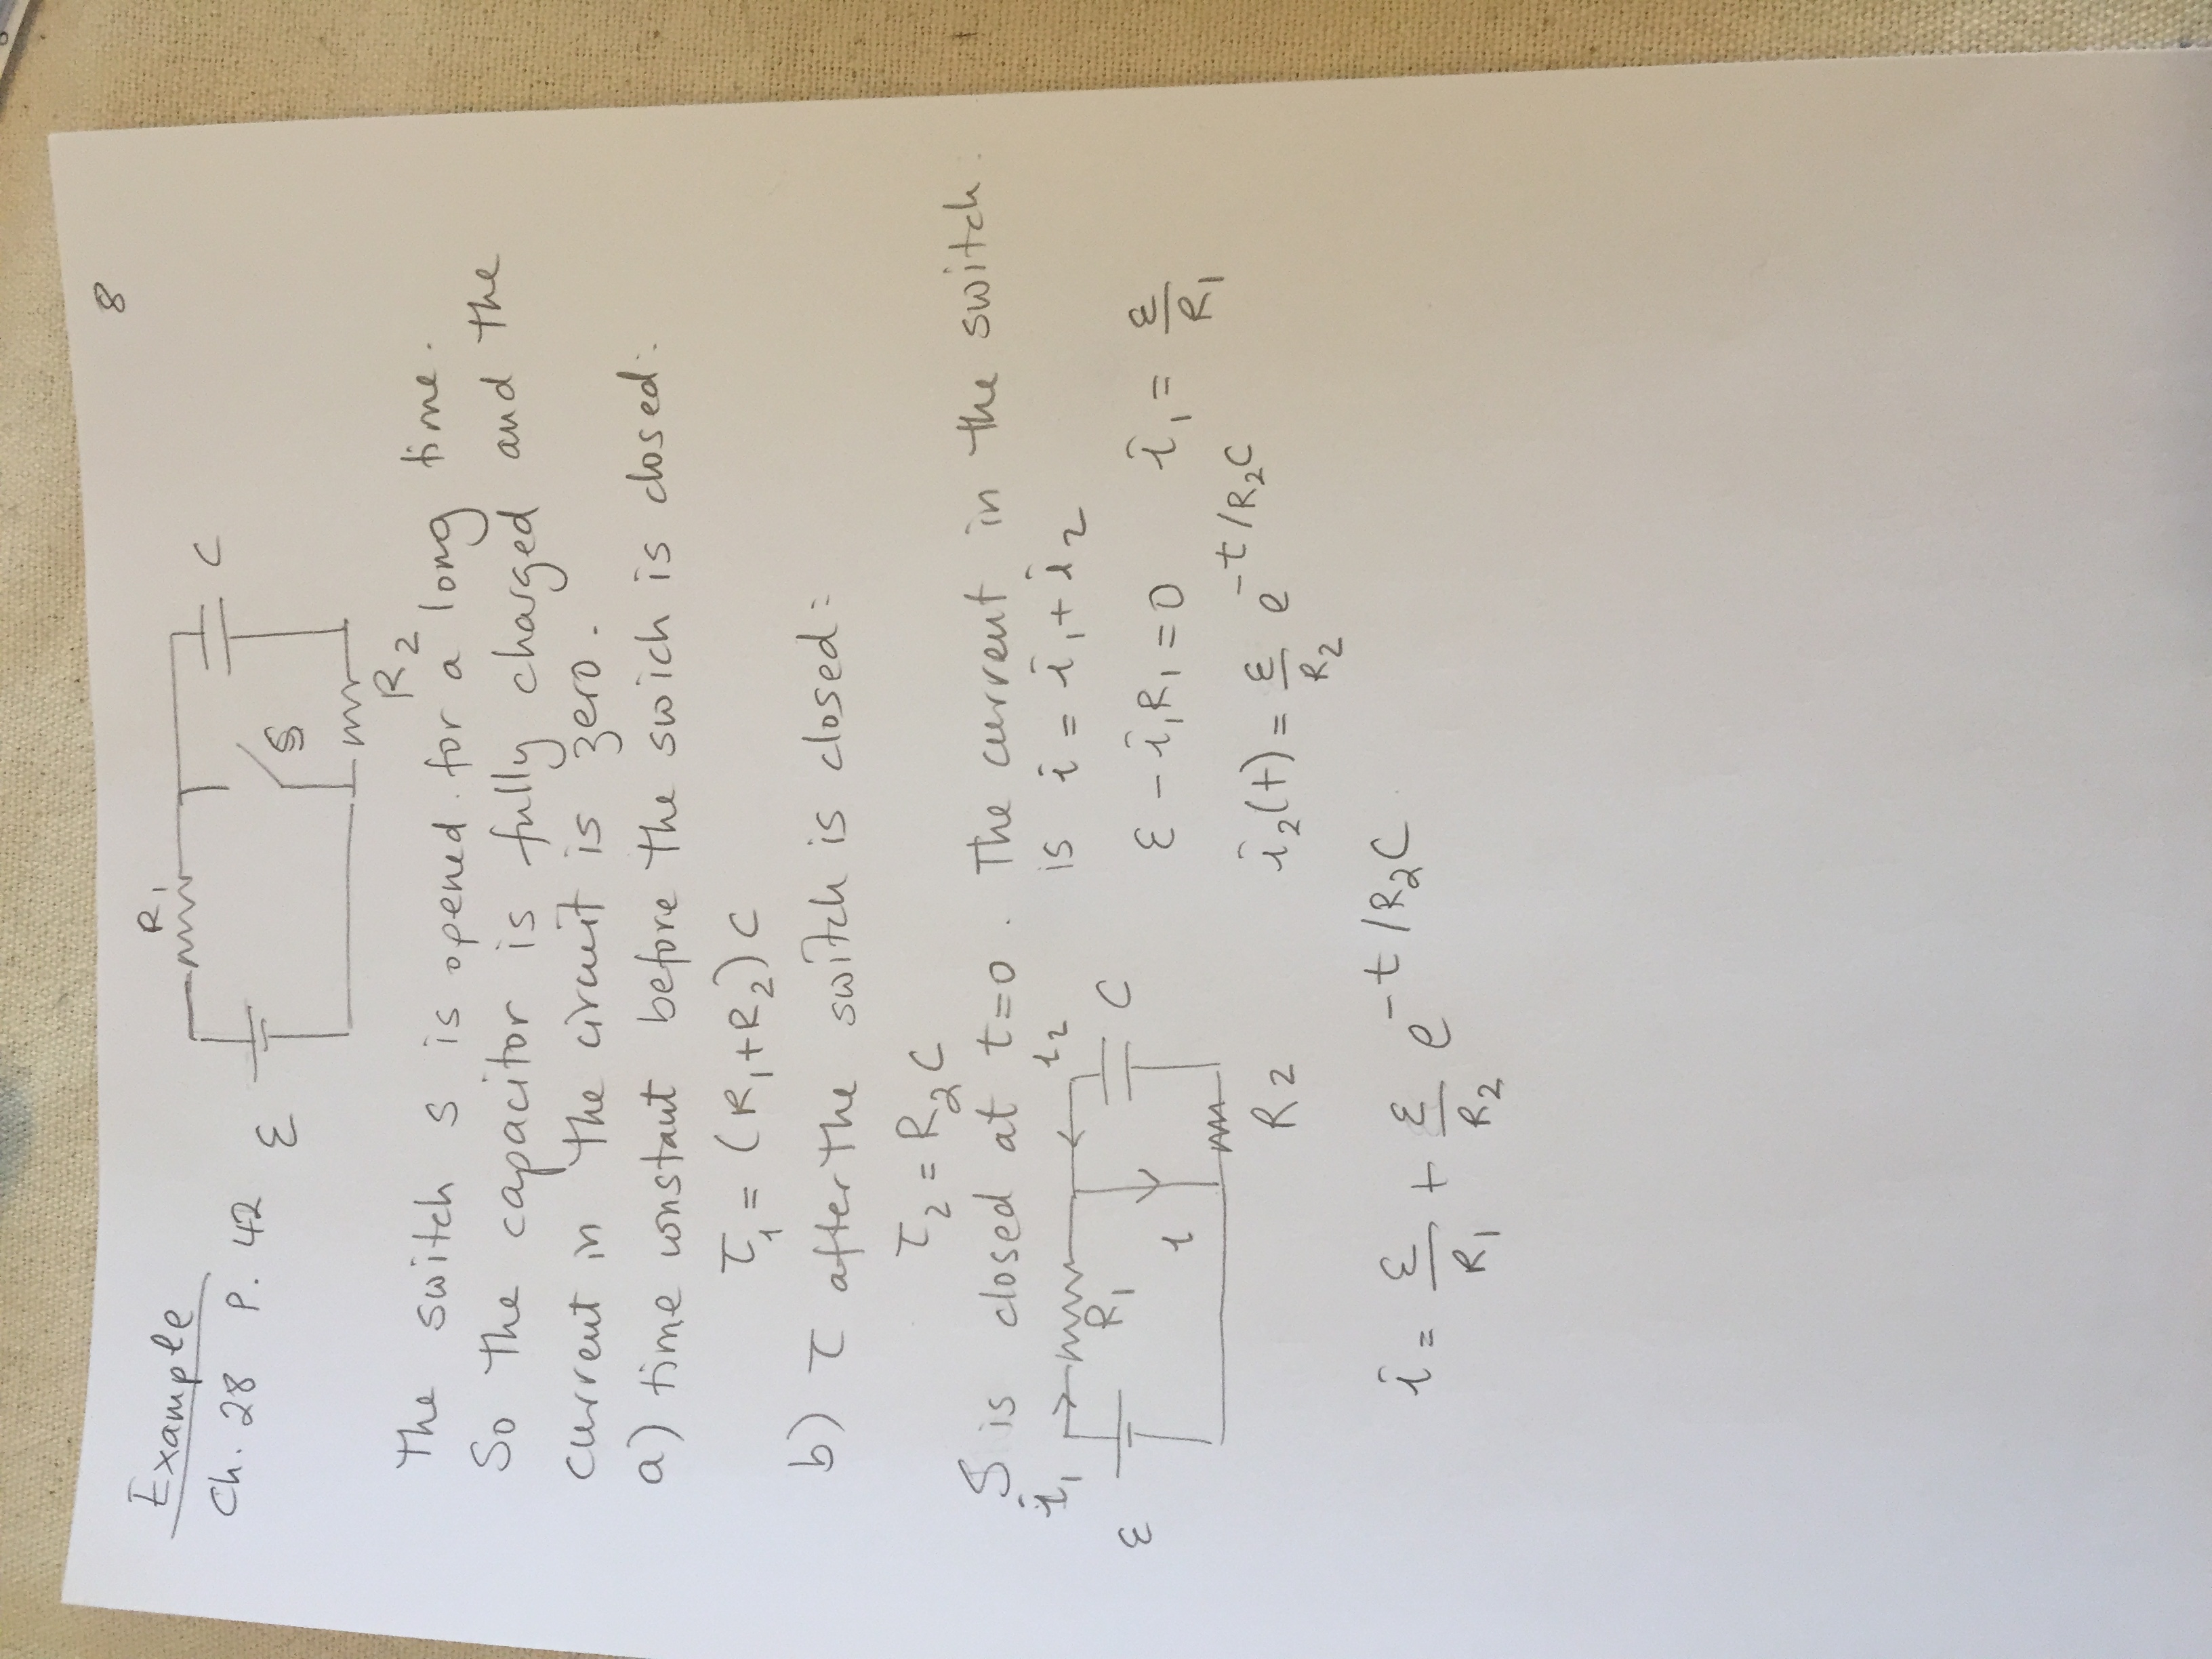 8
Example
Ch. 28 P. 42
R₁
C
ε
S
R₂
The switch S is opened for a long time.
So the capacitor is fully charged and the
current in the circuit is zero.
a) time constant before the swich is closed:
τ₁ = (R₁+R₂)C
b) τ after the switch is closed:
τ₂ = R₂C
S is closed at t=0. The current in the switch
is i = i₁ + i₂
i₁
i₂
R₁
C
ε
i
R₂
ε - i₁R₁ = 0 i₁ = ε/R₁
i₂(t) = ε/R₂ e^(-t/R₂C)
i = ε/R₁ + ε/R₂ e^(-t/R₂C)